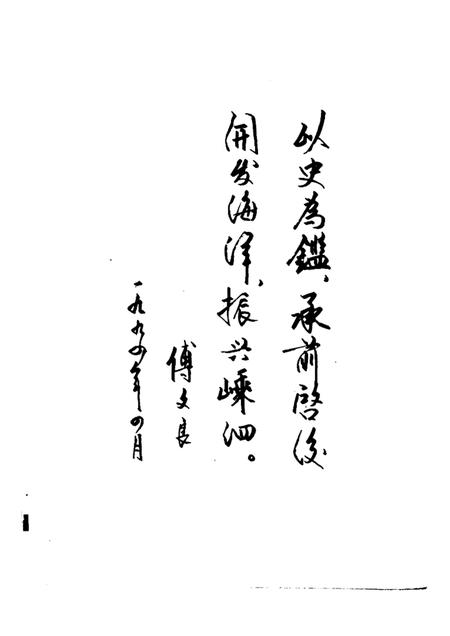 以史為鑑、承前啓後
開发海洋、振兴嵊泗。
傅文良
一九九四年四月